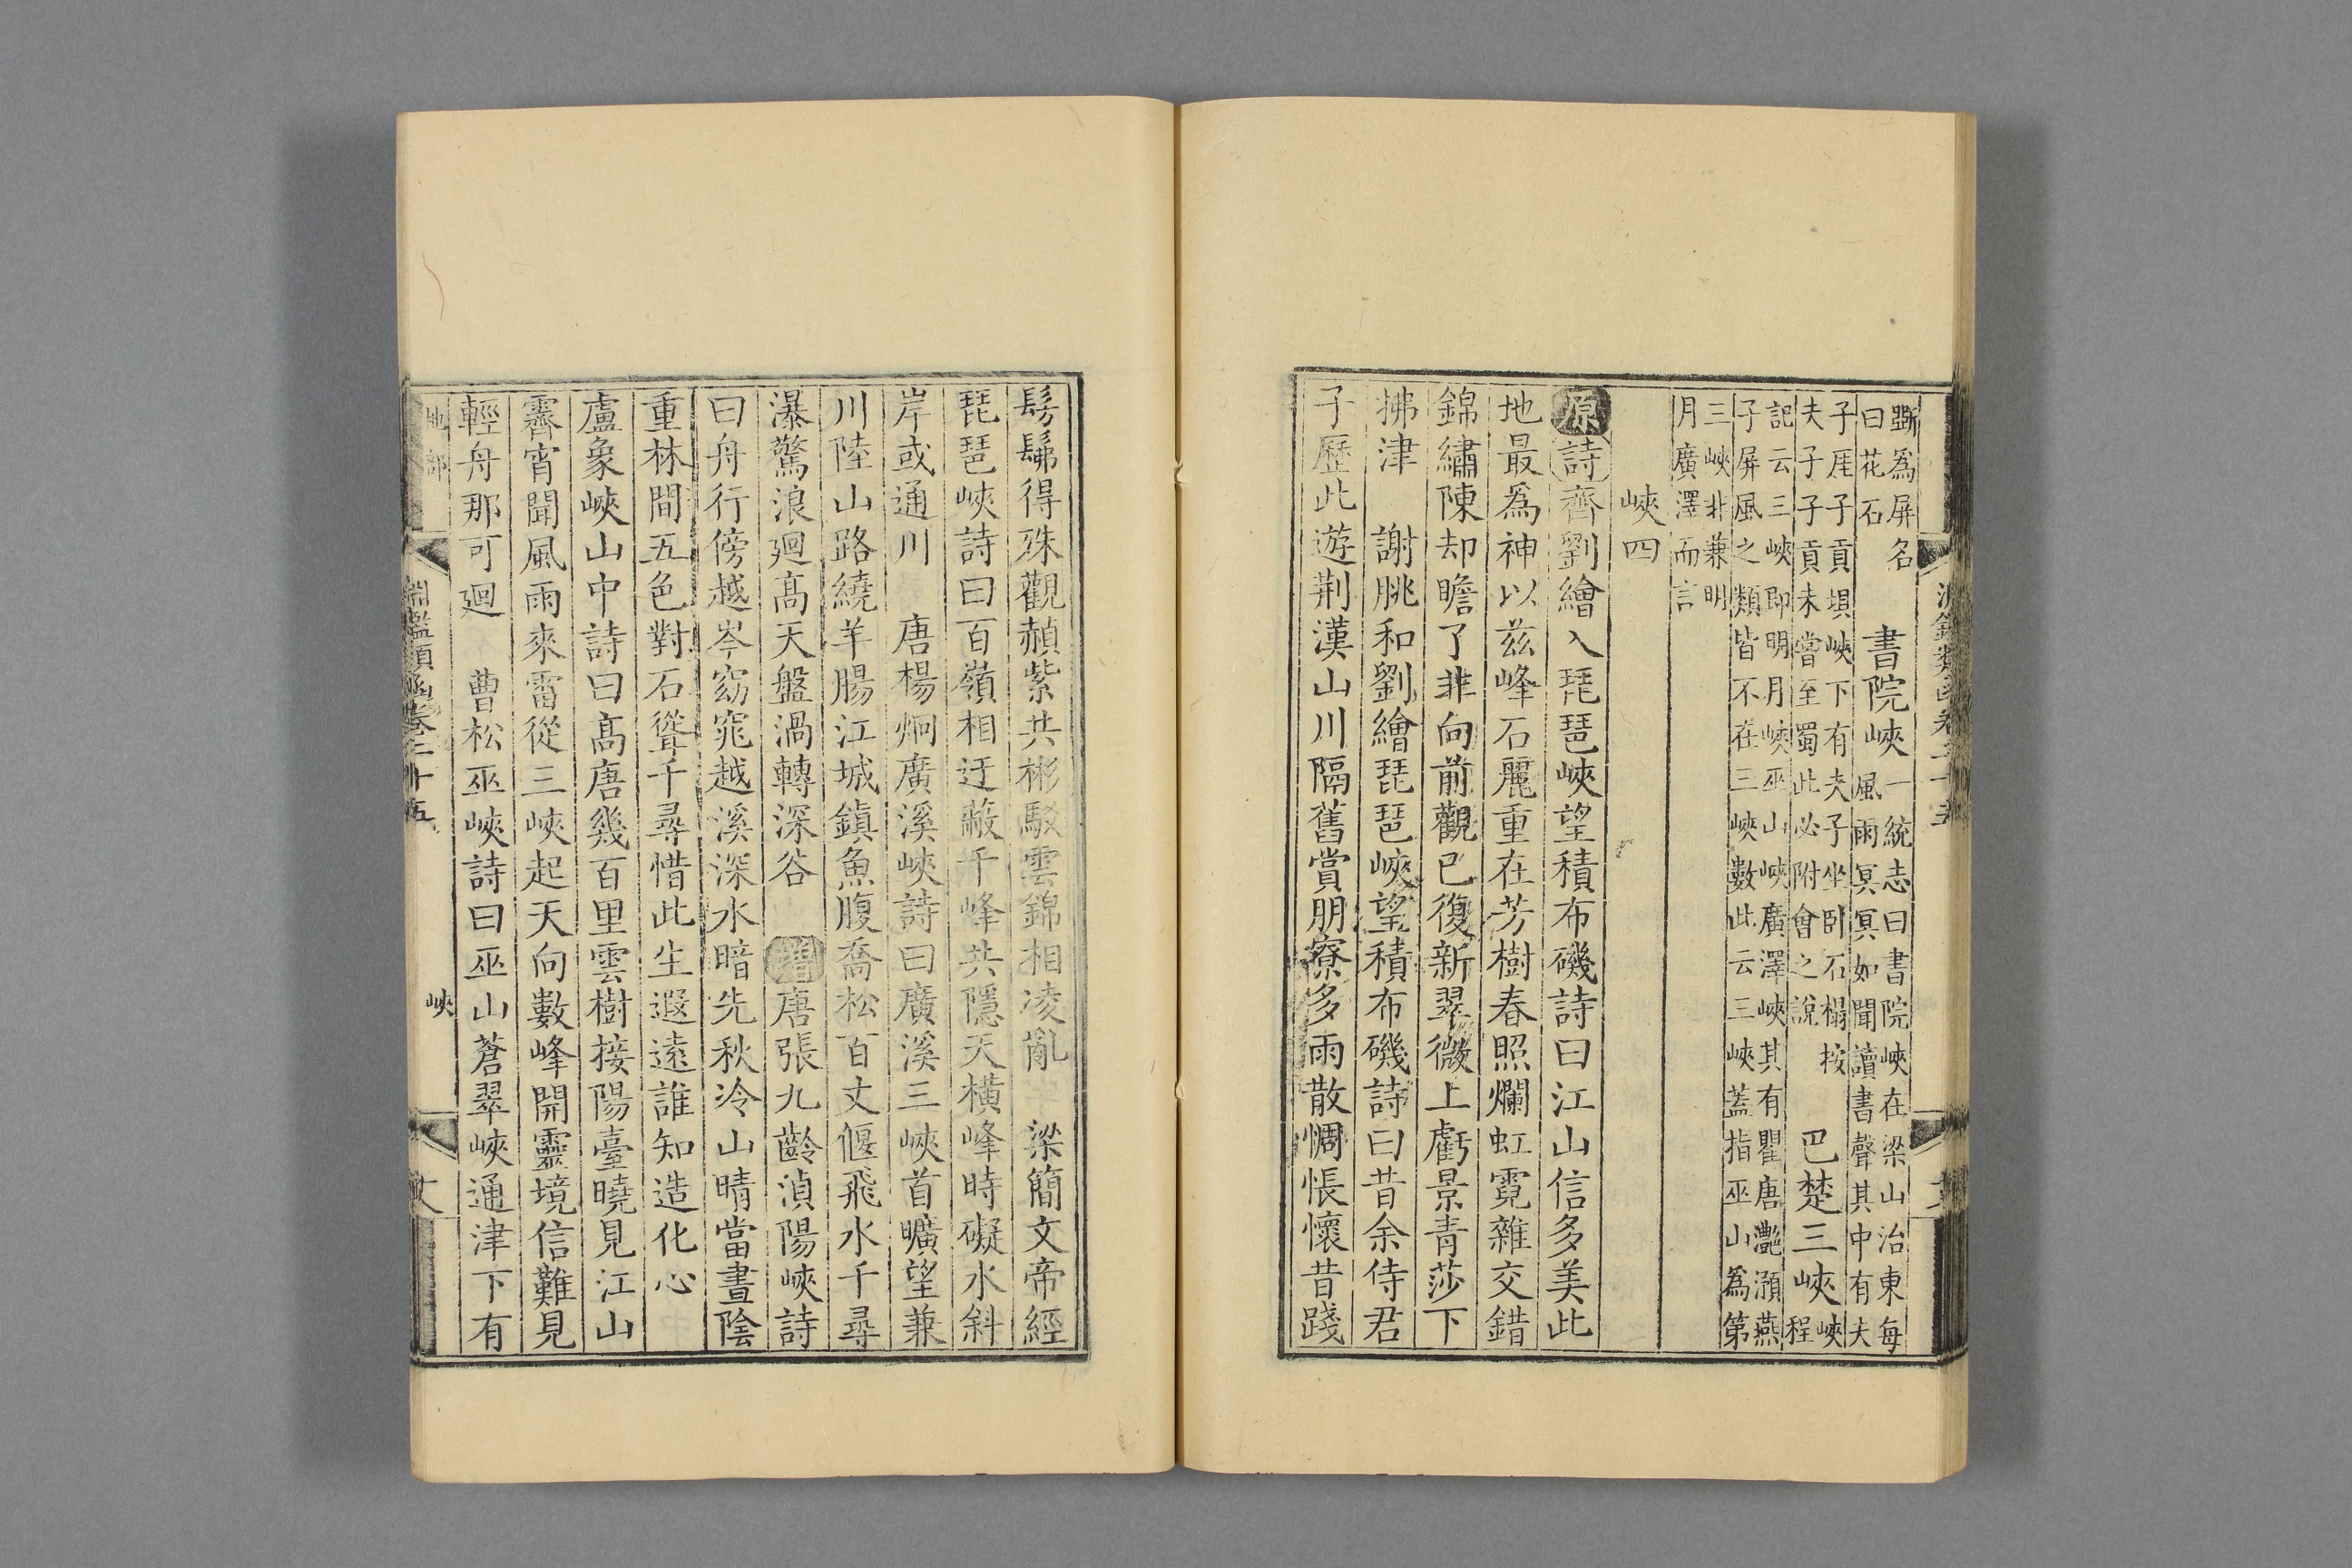 斲為屏名
曰花石
書院峽
一統志曰書院峽在梁山治東每
風雨冥冥如聞讀書聲其中有夫
子厓子貢埧峽下有夫子坐卧石榻按
夫子子貢未嘗至蜀此必附會之說
巴楚三峽
峽
程
記云三峽即明月峽巫山峽廣澤峽其有瞿唐灩澦燕
子屏風之類皆不在三峽數此云三峽蓋指巫山為第
三峽非兼明
月廣澤而言
峽四
原詩齊劉繪入琵琶峽望積布磯詩曰江山信多美此
地最為神以兹峰石麗重在芳樹春照爛虹霓雜交錯
錦繡陳却瞻了非向前觀已復新翠微上虧景青莎下
拂津 謝朓和劉繪琵琶峽望積布磯詩曰昔余侍君
子歷此遊荆漢山川隔舊賞朋寮多雨散惆悵懷昔踐
髣髴得殊觀赬紫共彬駁雲錦相凌亂 梁簡文帝經
琵琶峽詩曰百嶺相迂蔽千峰共隱天横峰時礙水斜
岸或通川 唐楊炯廣溪峽詩曰廣溪三峽首曠望兼
川陸山路繞羊腸江城鎮魚腹喬松百丈偃飛水千尋
瀑驚浪廻髙天盤渦轉深谷 增唐張九齡湞陽峽詩
曰舟行傍越岑窈窕越溪深水暗先秋冷山晴當晝陰
重林間五色對石聳千尋惜此生遐遠誰知造化心
盧象峽山中詩曰髙唐幾百里雲樹接陽臺曉見江山
霽宵聞風雨來雷從三峽起天向數峰開靈境信難見
輕舟那可廻 曹松巫峽詩曰巫山蒼翠峽通津下有
地部
淵鑑類函卷二十五
峽